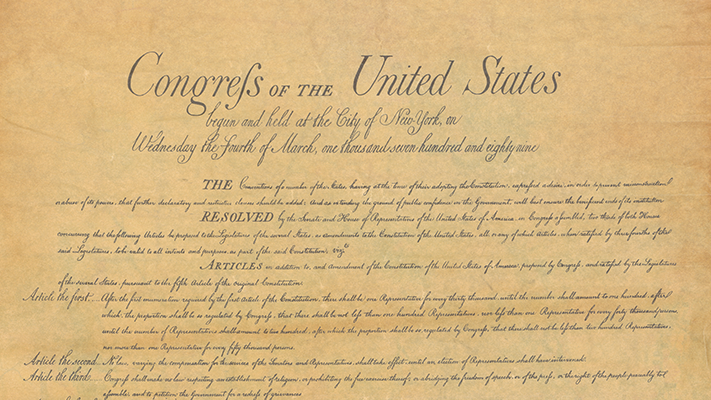 Congreſs OF THE United States
begun and held at the City of New York, on
Wednesday the Fourth of March, one thousand seven hundred and eighty nine
THE Conventions of a number of the States, having at the time of their adopting the Constitution, expressed a desire, in order to prevent misconstruction
or abuse of its powers, that further declaratory and restrictive clauses should be added: And as extending the ground of public confidence in the Government, will best ensure the beneficent ends of its institution
RESOLVED by the Senate and House of Representatives of the United States of America, in Congreſs aſsembled, two thirds of both Houses
concurring, that the following Articles be proposed to the Legislatures of the several States, as amendments to the Constitution of the United States, all or any of which Articles, when ratified by three fourths of the
said Legislatures, to be valid to all intents and purposes, as part of the said Constitution; vizt.
ARTICLES in addition to, and Amendment of the Constitution of the United States of America, proposed by Congreſs, and ratified by the Legislatures
of the several States, pursuant to the fifth Article of the original Constitution.
Article the first.... After the first enumeration required by the first Article of the Constitution, there shall be one Representative for every thirty thousand, until the number shall amount to one hundred, after
which, the proportion shall be so regulated by Congreſs, that there shall be not leſs than one hundred Representatives, nor leſs than one Representative for every forty thousand persons,
until the number of Representatives shall amount to two hundred; after which the proportion shall be so regulated by Congreſs, that there shall not be leſs than two hundred Representatives,
nor more than one Representative for every fifty thousand persons.
Article the second.... No law, varying the compensation for the services of the Senators and Representatives, shall take effect, until an election of Representatives shall have intervened.
Article the third.... Congreſs shall make no law respecting an establishment of religion, or prohibiting the free exercise thereof; or abridging the freedom of speech, or of the preſs, or the right of the people peaceably to
aſsemble, and to petition the Government for a redreſs of grievances